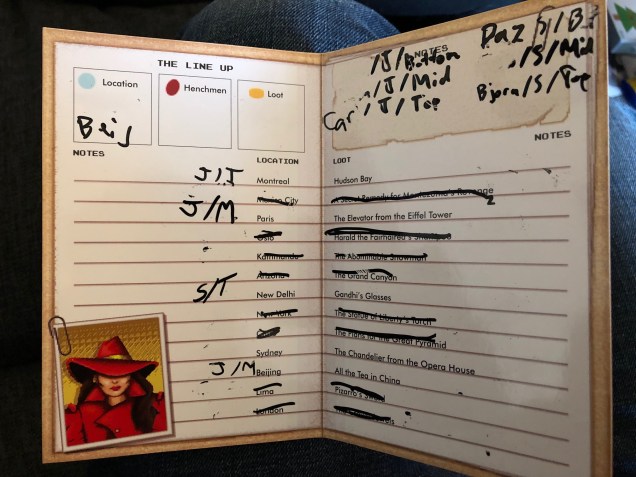 THE LINE UP
Location
Henchmen
Loot
Beij
NOTES
LOCATION
J/T Montreal
Mexico City
J/M. Paris
Oslo
Kathmandu
Arizona
S/T New Delhi
New York
Sydney
J/M Beijing
Lima
London
NOTES
/J/Bottom
/J/Mid
Car/J/Top
Paz/S/B
/S/Mid
Bjorn/S/Top
NOTES
LOOT
Hudson Bay
A Secret Remedy for Montezuma's Revenge
The Elevator from the Eiffel Tower
Harald the Fairhaired's
The Abominable Snowman
The Grand Canyon
Gandhi's Glasses
The Statue of Liberty's Torch
The Plans for the Great Pyramid
The Chandelier from the Opera House
All the Tea in China
Pizarro's
The